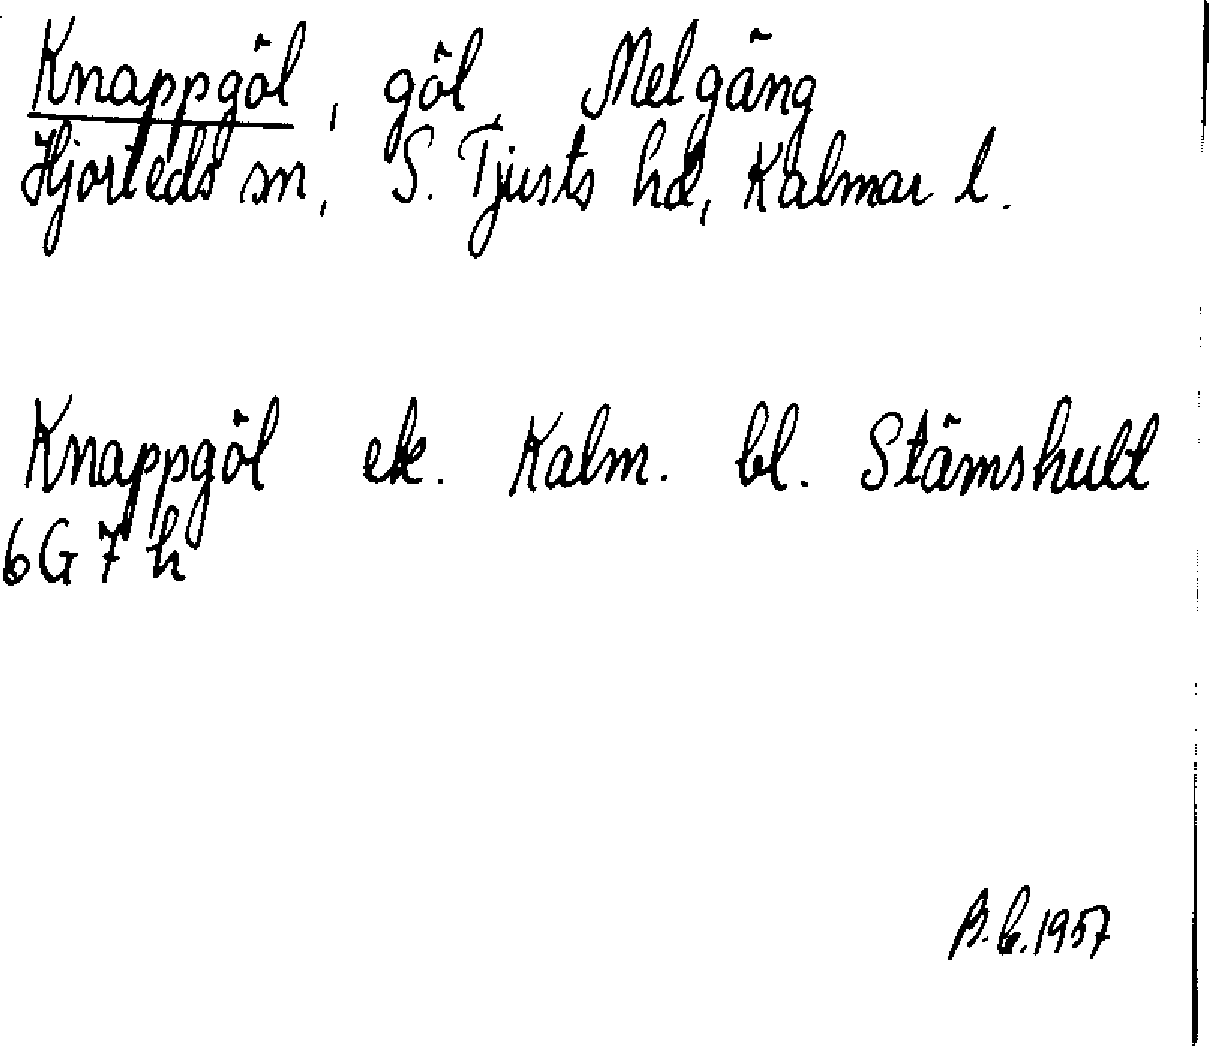 Knappgöl, göl, Melgäng
Hjorteds sn, S. Tjusts hd, Kalmar l.
Knappgöl ek. Kalm. bl. Stämshult
6G7h
B.L.1957